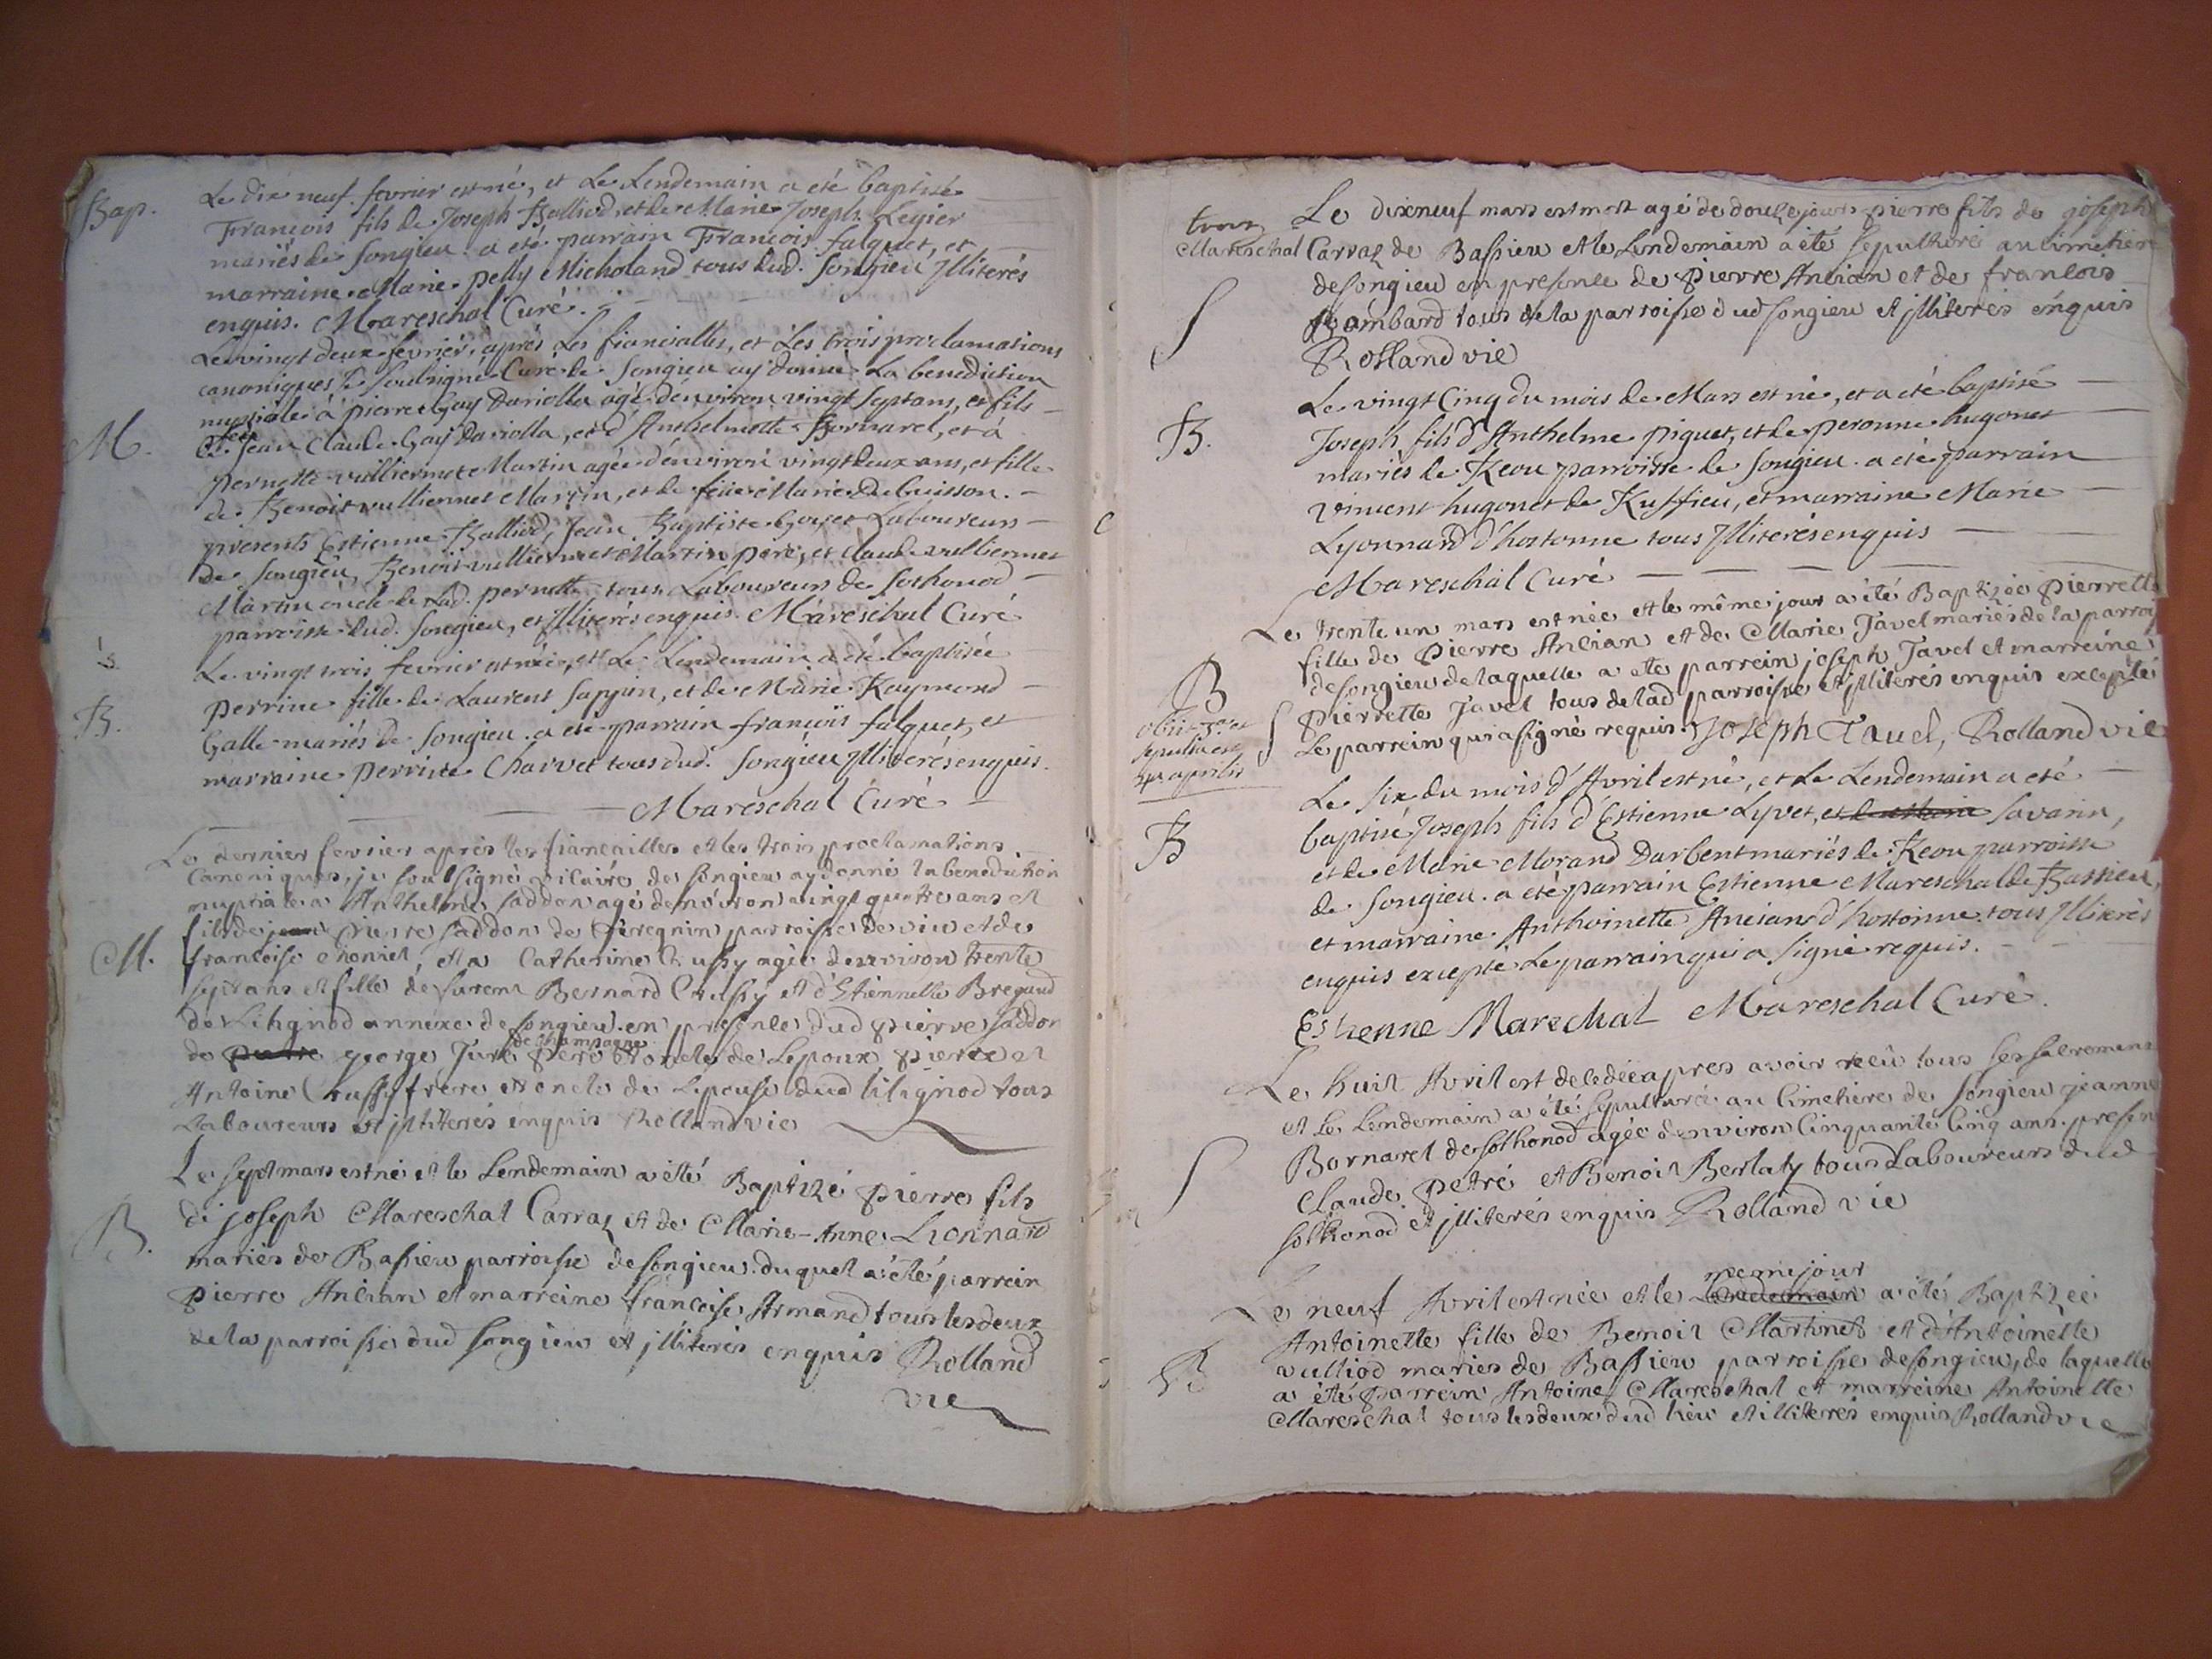 Bap.
Le dix neuf fevrier est né, et Le Lendemain a eté baptisé
François fils de Joseph Balliod, et de Marie Joseph Legier
mariés de Songieu. a eté parrain François falquet, et
marraine Marie pelly Micholand tous dud. Songieu Illiterés
enquis. Mareschal Curé.
M.
Le vingt deux fevrier, après Les fiancialles, et Les trois proclamations
canoniques je Soubsigné Curé de Songieu ay donné La benediction
nuptiale à pierre Guy Dariolla agé d'environ vingt Sept ans, et fils
de feu Jean Claude Guy Dariolla, et d'Anthelmette Bornarel, et à
pernette vulliermet Martin agée d'environ vingt deux ans, et fille
de Benoit vulliermet Martin, et de feüe Marie Du buisson.
presents Estienne Balliod, Jean Baptiste Laboureurs
de Songieu, Benoit vulliermet Martin pere, et Claude vulliermet
Martin oncle de Lad. pernette tous Laboureurs de Sothonod
parroisse dud. Songieu, et Illiterés enquis. Mareschal Curé
B.
Le vingt trois fevrier est née, et Le Lendemain a eté baptisée
perrine fille de Laurent Sappin, et de Marie Raymond
Galle mariés de Songieu. a eté parrain françois falquet, et
marraine perrine Charvet tous dud. Songieu Illiterés enquis.
Mareschal Curé
M.
Le dernier fevrier après les fiancailles et les trois proclamations
Canoniques, je soussigné vicaire de songieu ay donné la benediction
nuptiale a Anthelme saddon agé denviron vingt quatre ans et
fils de pierre saddon de parroisse de vieu et de
francoise choniet, et a Catherine Crussy agée denviron trente
sept ans et fille de Bernard Crussy et d'Etiennette Bregand
de Lilignod annexe de songieu. en presence dud pierre saddon
de george Juré de champagne pere et oncle de Lepoux pierre et
Antoine Crussy frere et oncle de Lepouse dud lilignod tous
Laboureurs et jlliterés enquis Rolland vic
B.
Le sept mars est né et le Lendemain a été Baptizé pierre fils
de joseph Mareschal Carraz et de Marie-Anne Lionnard
mariés de Bassieu parroisse de songieu. duquel a été parrein
pierre Ancian et marreine françoise Armand tous les deux
de la parroisse dud songieu et jlliterés enquis Rolland
vic
Mareschal
S
Le dixneuf mars est mort agé de douze jours pierre fils de joseph
Carraz de Bassieu et le Lendemain a été sepulturé au cimetiere
de songieu en presence de pierre Ancian et de francois
tous de la parroisse dud songieu et jlliterés enquis
Rolland vic
B.
Le vingt Cinq du mois de Mars est né, et a eté baptisé
Joseph fils d'Anthelme piguet, et de peronne hugonet
mariés de Reou parroisse de Songieu. a eté parrain
vincent hugonet de Ruffieu, et marraine Marie
Lyonnard d'hostonne tous Illiterés enquis
Mareschal Curé
B
obiit 3a et
sepulta est
4a aprilis
S
Le trente un mars est née et le même jour a été Baptizée pierrette
fille de pierre Ancian et de Marie Javel mariés de la parroi
de songieu de laquelle a été parrein joseph Javel et marreine
pierrette Javel tous de lad parroisse et jlliterés enquis excepté
Le parrein qui a signé requis. Joseph Javel, Rolland vic
B
Le Six du mois d'Avril est né, et Le Lendemain a eté
baptisé Joseph fils d'Estienne Lyvet, et de Marie Savarin,
et de Marie Morand Darbent mariés de Reou parroisse
de Songieu. a eté parrain Estienne Mareschal de Bassieu,
et marraine Anthoinette Ancian d'hostonne. tous Illiterés
enquis excepté Le parrain qui a Signé requis.
Estienne Marechal Mareschal Curé.
S
Le huit Avril est decedée apres avoir receû tous ses sacremens
et le Lendemain a été sepulturée au Cimetiere de songieu jeanne
Bornarel de sothonod agée d'environ Cinquante Cinq ans. presen
Claude petré et Benoit Berlaty tous Laboureurs dud
sothonod et jlliterés enquis Rolland vic
B
meme jour
Le neuf Avril est née et le Lendemain a été Baptizée
Antoinette fille de Benoit Martinet et d'Antoinette
vulliod mariés de Bassieu parroisse de songieu, de laquelle
a été parrein Antoine Mareschal et marreine Antoinette
Mareschal tous les deux dud lieu et illiterés enquis Rolland vic